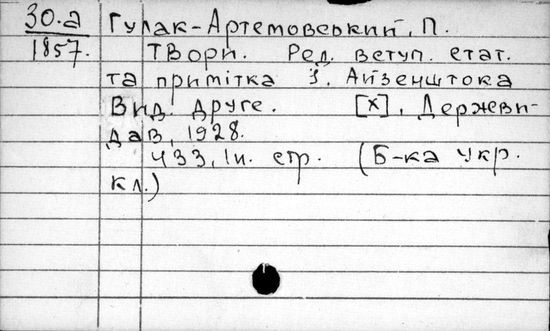 30.а Гулак-Артемовський, П.
1857. Твори. Ред. вступ. стат.
та примітка І. Айзенштока
Вид. друге. [Х], Держви-
дав, 1928.
433, Ін. стр. (Б-ка укр.
кл.)